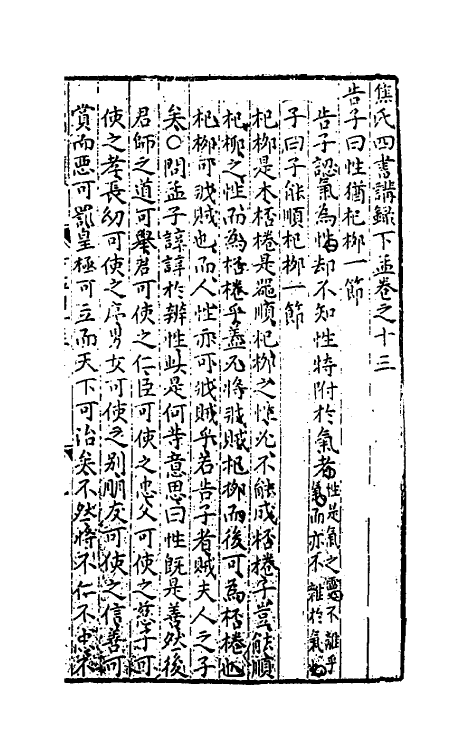 焦氏四書講錄下孟卷之十三
告子曰性猶杞柳一節
告子認氣為性却不知性特附於氣者性是氣之靈不離乎氣而亦不雜於氣也
子曰子能順杞柳一節
杞柳是木桮棬是器順杞柳之性必不能成桮棬子豈能順
杞柳之性而為桮棬乎蓋先將戕賊杞柳而後可為桮棬也
杞柳可戕賊也而人性亦可戕賊乎若告子者賊夫人之子
矣○問孟子諄諄於辨性此是何等意思曰性既是善然後
君師之道可舉君可使之仁臣可使之忠父可使之慈子可
使之孝長幼可使之序男女可使之別朋友可使之信善可
賞而惡可罰皇極可立而天下可治矣不然將不仁不忠不